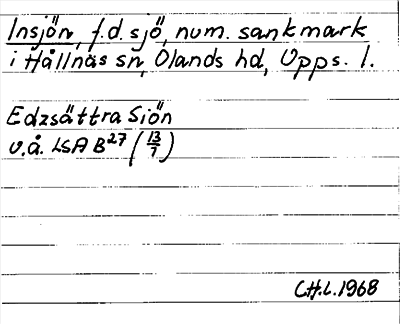 Insjön, f.d. sjö, num. sankmark
i Hållnäs sn, Olands hd, Upps. l.
Edzsättra Siön
u.å. LSA B27 (13/7)
C.H.L. 1968